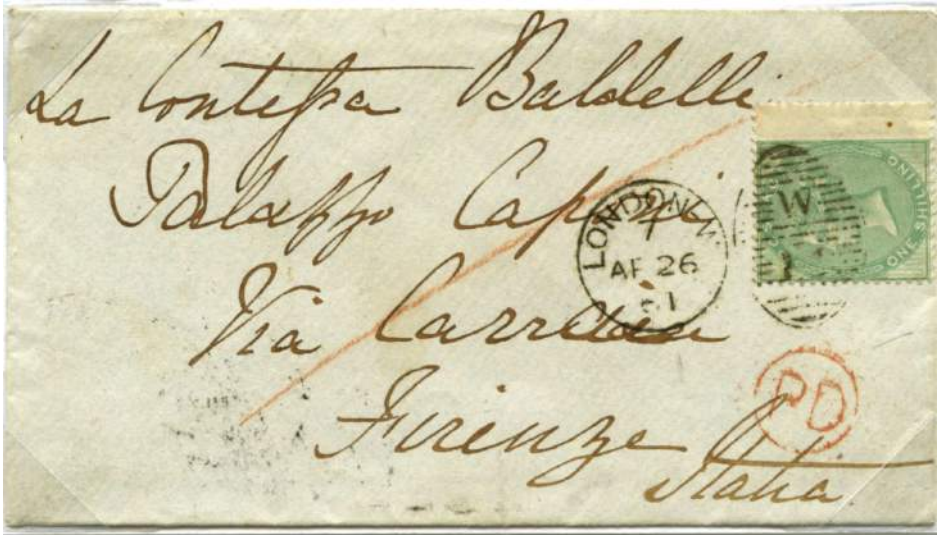 La Contessa Baldelli
Palazzo Capponi
Via Larga
Firenze
Italia
LONDON W
7
AP 26
61
W
ONE SHILLING
PD